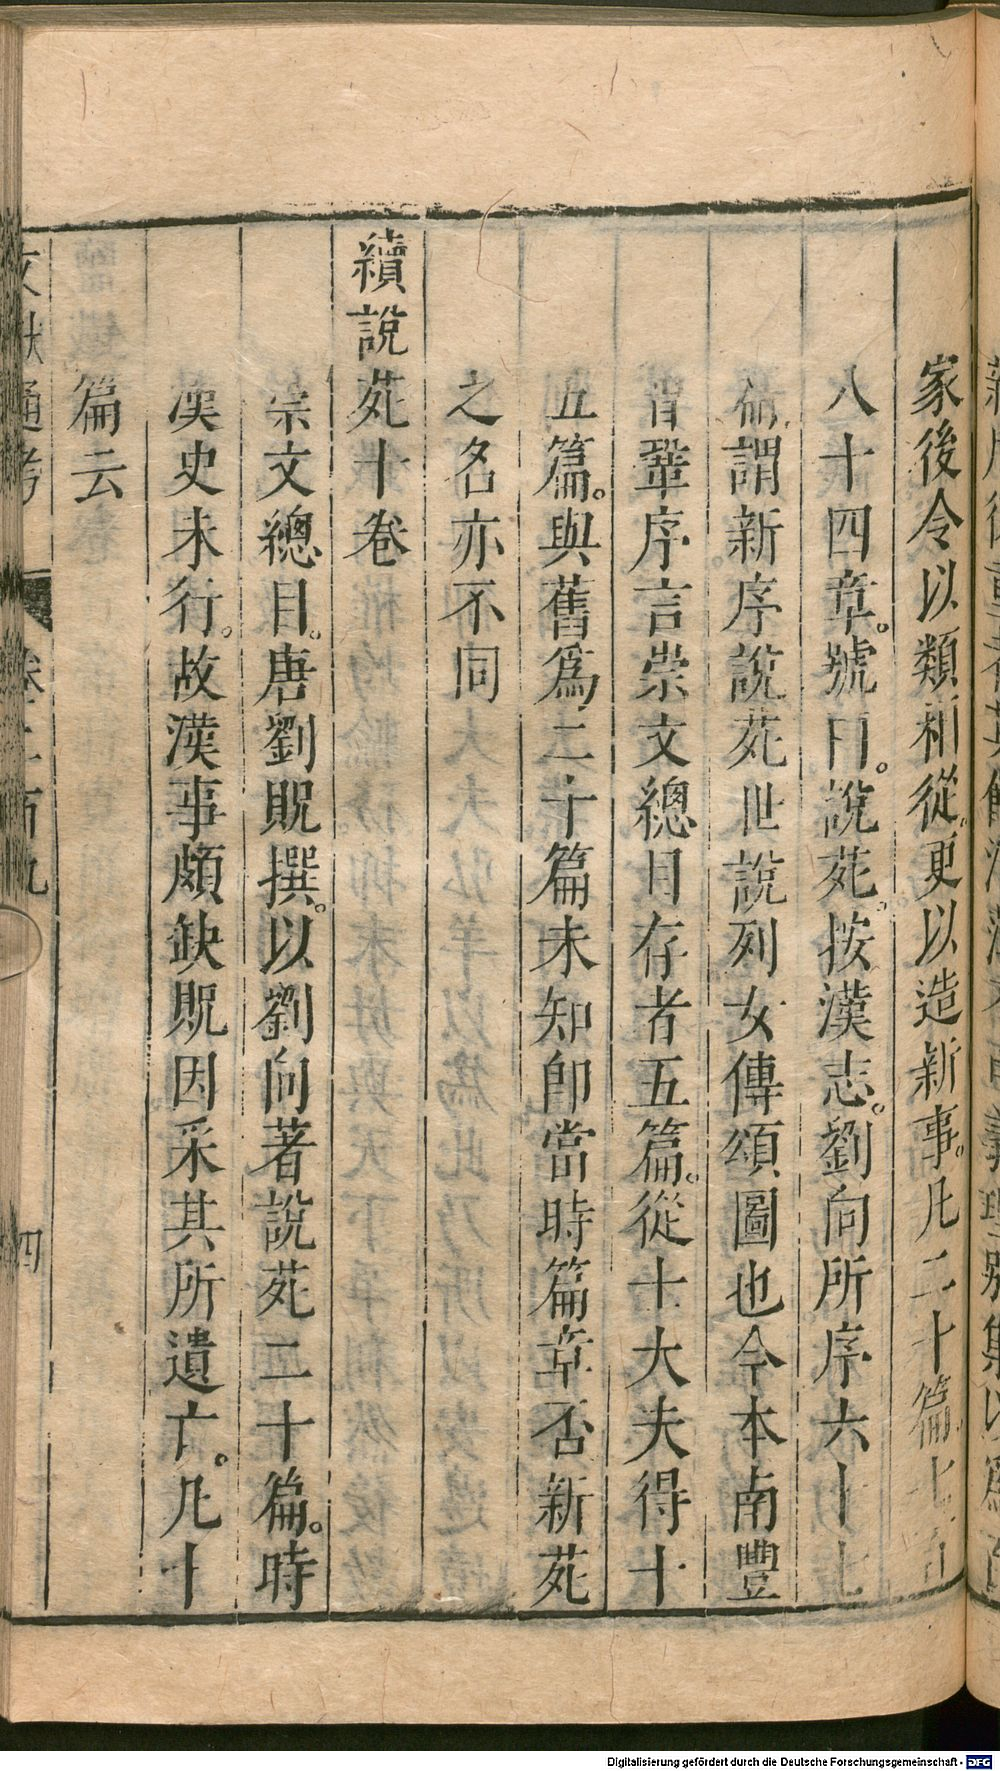 家後令以類相從。更以造新事。凡二十篇。七百
八十四章。號曰。說苑。按漢志。劉向所序六十七
篇。謂新序說苑世說列女傳頌圖也今本南豐
曾鞏序言崇文總目存者五篇。從士大夫得十
五篇。與舊爲二十篇未知卽當時篇章否新苑
之名亦不同
續說苑十卷
崇文總目。唐劉貺撰。以劉向著說苑二十篇。時
漢史未行。故漢事頗缺貺因采其所遺亡。凡十
篇云
文獻通考 卷二百九 四
Digitalisierung gefördert durch die Deutsche Forschungsgemeinschaft - DFG